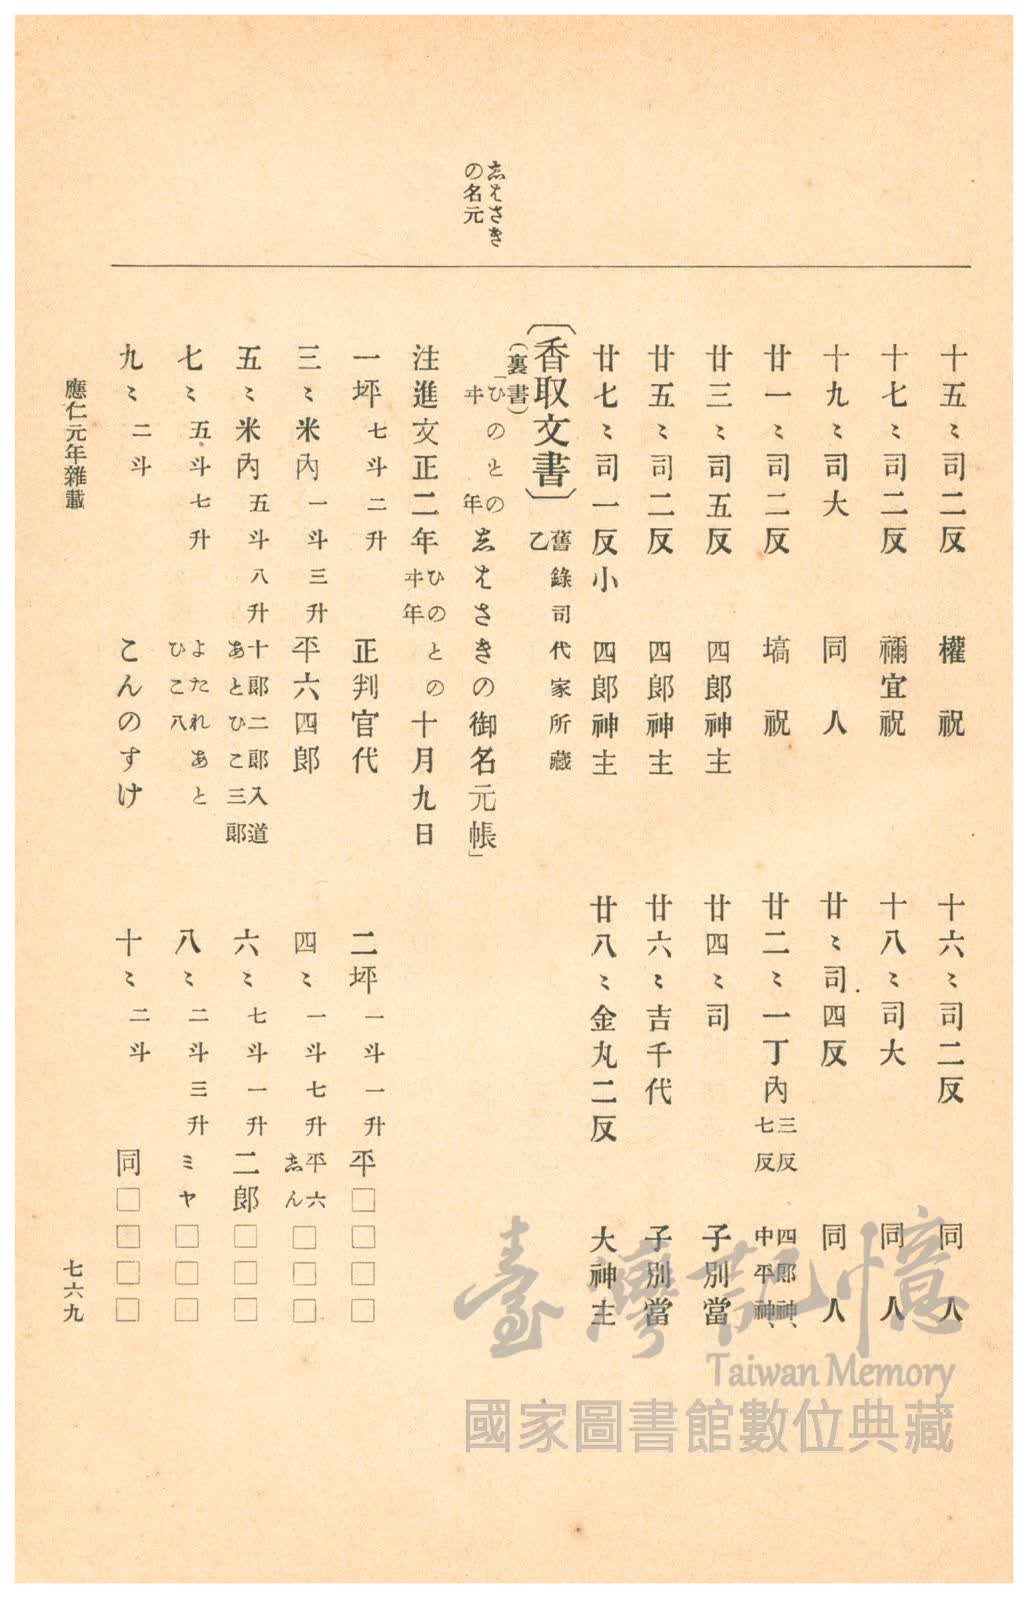 志はさき
の名元
十五〻司二反 權祝 十六〻司二反 同人
十七〻司二反 禰宜祝 十八〻司大 同人
十九〻司大 同人 廿〻司四反 同人
廿一〻司二反 塙祝 廿二〻一丁內 三反 七反 四郎神、 中平神、
廿三〻司五反 四郎神主 廿四〻司 子別當
廿五〻司二反 四郎神主 廿六〻吉千代 子別當
廿七〻司一反小 四郎神主 廿八〻金丸二反 大神主
〔香取文書〕 舊錄司代家所藏 乙
(裏書)
「ひのとの ヰ年 志はさきの御名元帳」
注進文正二年 ひのとの ヰ年 十月九日
一坪 七斗二升 正判官代 二坪 一斗一升 平□□□□
三〻米內 一斗三升 平六四郎 四〻 一斗七升 平六 志ん □□□
五〻米內 五斗八升 十郎二郎入道 あとひこ三郎 六〻 七斗一升 二郎□□□
七〻 五斗七升 よたれあと ひこ八 八〻 二斗三升 ミヤ□□□
九〻 二斗 こんのすけ 十〻 二斗 同□□□□
應仁元年雜載
七六九
臺灣記憶
Taiwan Memory
國家圖書館數位典藏